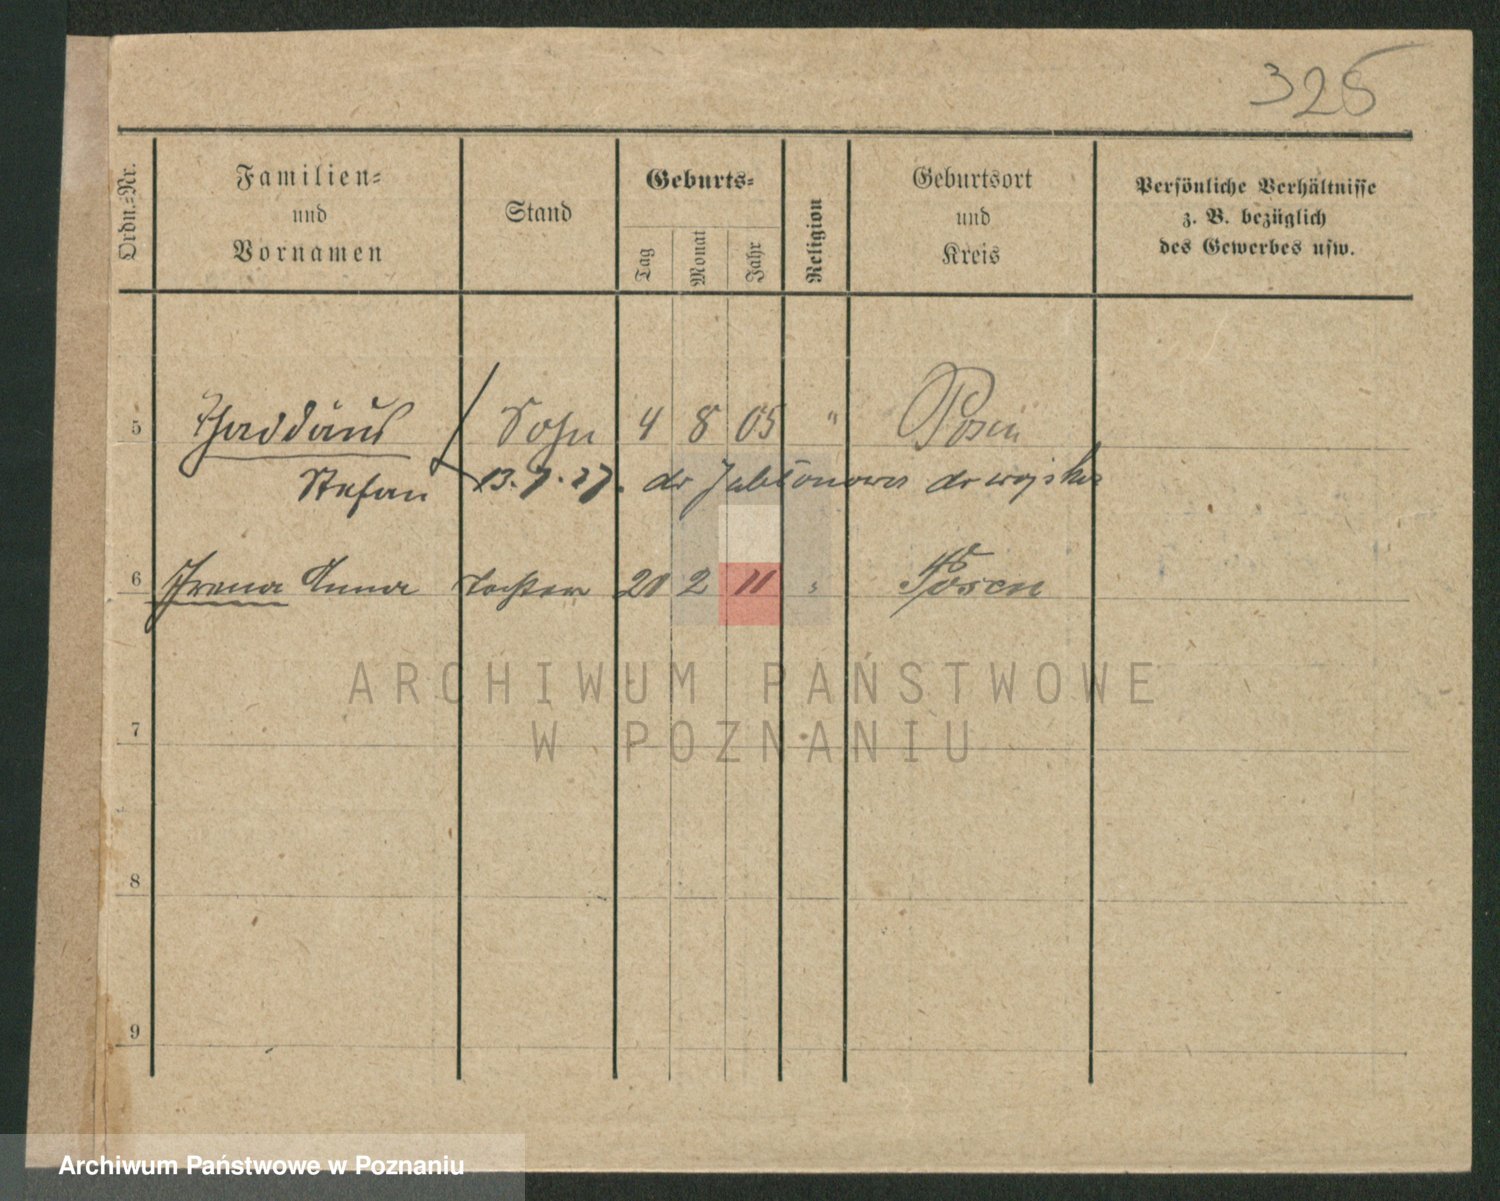 325
Ordn.-Nr.
Familien-
und
Vornamen
Stand
Geburts-
Tag
Monat
Jahr
Religion
Geburtsort
und
Kreis
Persönliche Verhältnisse
z. B. bezüglich
des Gewerbes usw.
5 Thaddäus Sohn 4 8 05 " Posen
Stefan 13.7.27. do Jabłonowa do wojska
6 Irena Anna Tochter 20 2 11 " Posen
ARCHIWUM PAŃSTWOWE
W POZNANIU
7
8
9
Archiwum Państwowe w Poznaniu